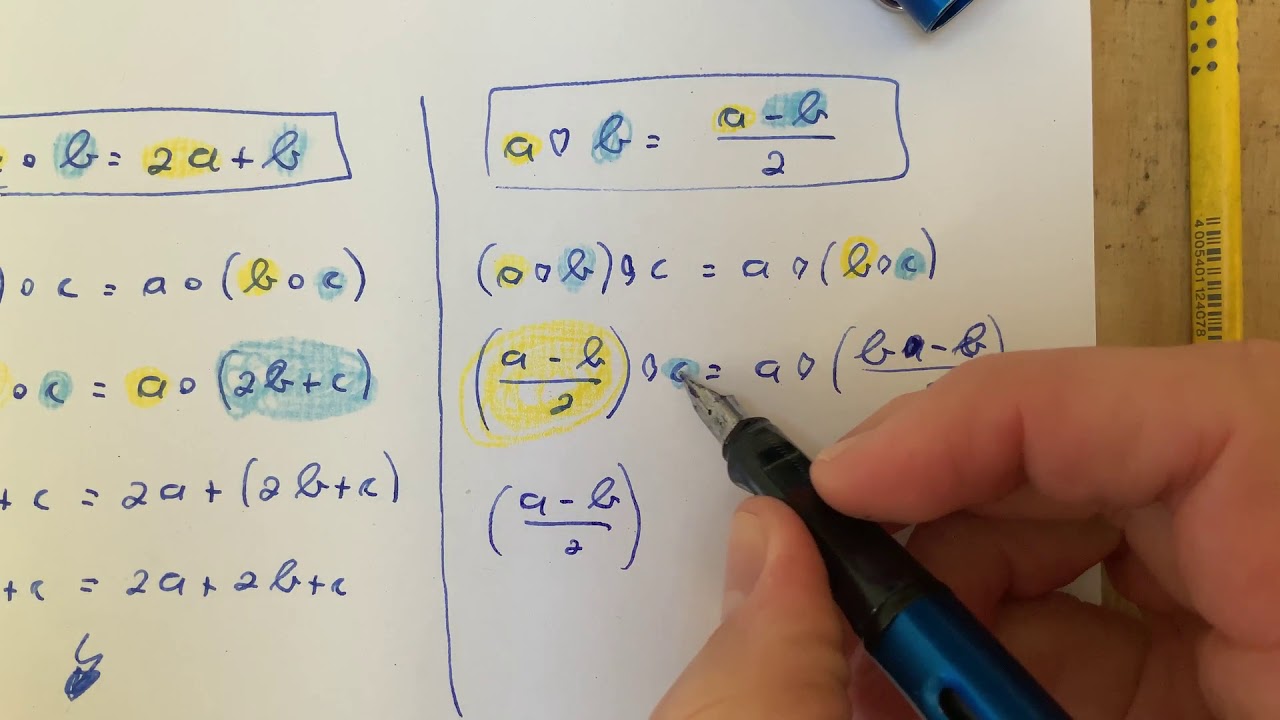 ∘ b = 2a + b
) ∘ c = a ∘ (b ∘ c)
∘ c = a ∘ (2b + c)
+ c = 2a + (2b + c)
+ c = 2a + 2b + c
a ▽ b = (a - b)/2
(a ▽ b) ▽ c = a ▽ (b ▽ c)
((a - b)/2) ▽ c = a ▽ (b - b
((a - b)/2)
4005401124078